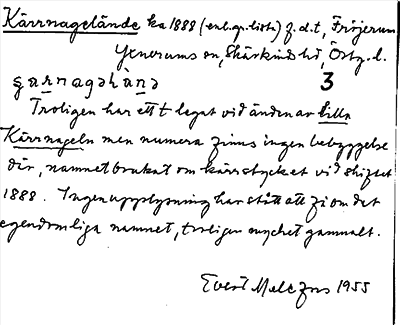 Kärrnagelände ka 1888 (enl.gr.listi) f.d.t, Fröjerum
Yxnerums sn, Skärkinds hd, Östg.l.
3
Troligen har ett t legat vid änden av Lilla
Kärrnageln men numera finns ingen bebyggelse
där, namnet brukat om kärrstycket vid skiftet
1888. Ingen upplysning har stått att få om det
egendomliga namnet, troligen mycket gammalt.
Evert Melefors 1955